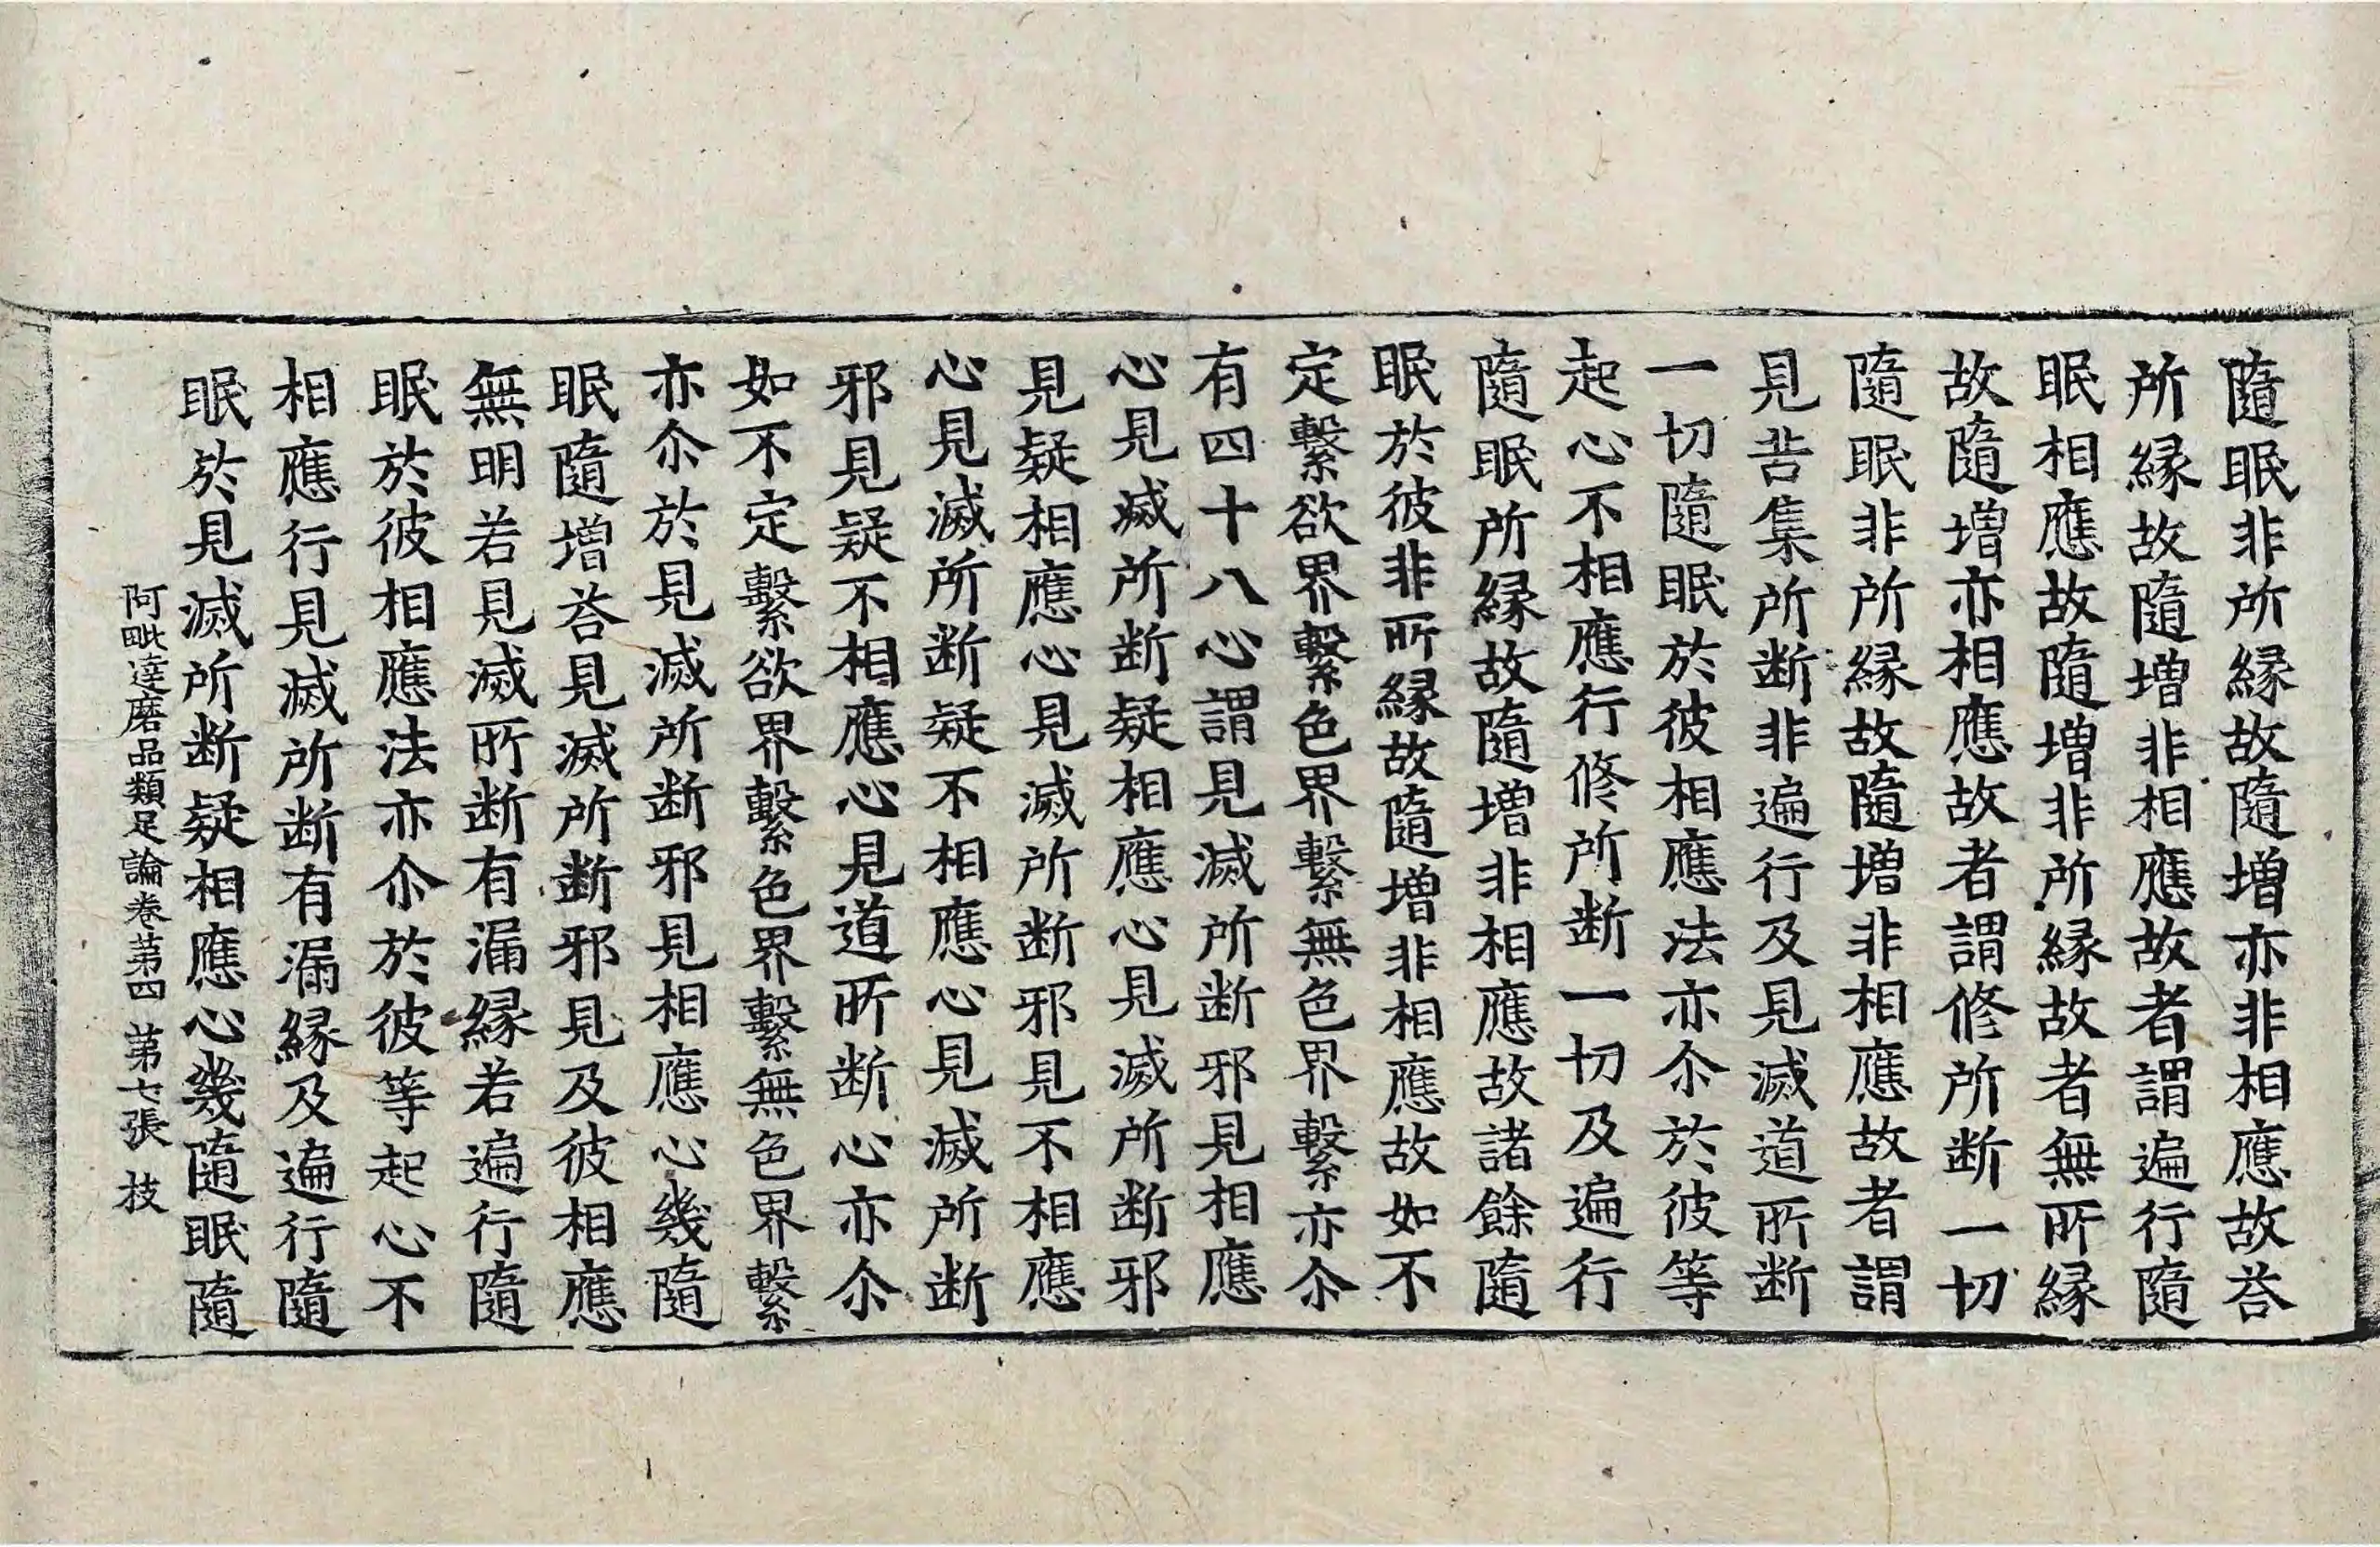 隨眠非所縁故隨增亦非相應故荅
所縁故隨增非相應故者謂遍行隨
眠相應故隨增非所縁故者無所縁
故隨增亦相應故者謂修所断一切
隨眠非所縁故隨增非相應故者謂
見苦集所断非遍行及見滅道所断
一切隨眠於彼相應法亦尒於彼等
起心不相應行修所断一切及遍行
隨眠所縁故隨增非相應故諸餘隨
眠於彼非所縁故隨增非相應故如不
定繫欲界繫色界繫無色界繫亦尒
有四十八心謂見滅所断邪見相應
心見滅所断疑相應心見滅所断邪
見疑相應心見滅所断邪見不相應
心見滅所断疑不相應心見滅所断
邪見疑不相應心見道所断心亦尒
如不定繫欲界繫色界繫無色界繫
亦尒於見滅所断邪見相應心幾隨
眠隨增荅見滅所断邪見及彼相應
無明若見滅所断有漏縁若遍行隨
眠於彼相應法亦尒於彼等起心不
相應行見滅所断有漏縁及遍行隨
眠於見滅所断疑相應心幾隨眠隨
阿毗達磨品類足論卷第四 第七張 技